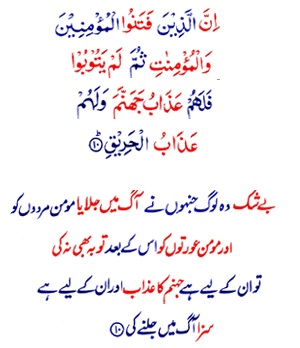 اِنَّ الَّذِيْنَ فَتَنُوا الْمُؤْمِنِيْنَ
وَالْمُؤْمِنٰتِ ثُمَّ لَمْ يَتُوْبُوْا
فَلَهُمْ عَذَابُ جَهَنَّمَ وَلَهُمْ
عَذَابُ الْحَرِيْقِ ؕ﴿۱۰﴾
بے شک وہ لوگ جنہوں نے آگ میں جلایا مومن مردوں کو
اور مومن عورتوں کو اس کے بعد توبہ بھی نہ کی
تو ان کے لیے ہے جہنم کا عذاب اور ان کے لیے ہے
سزا آگ میں جلنے کی ﴿۱۰﴾